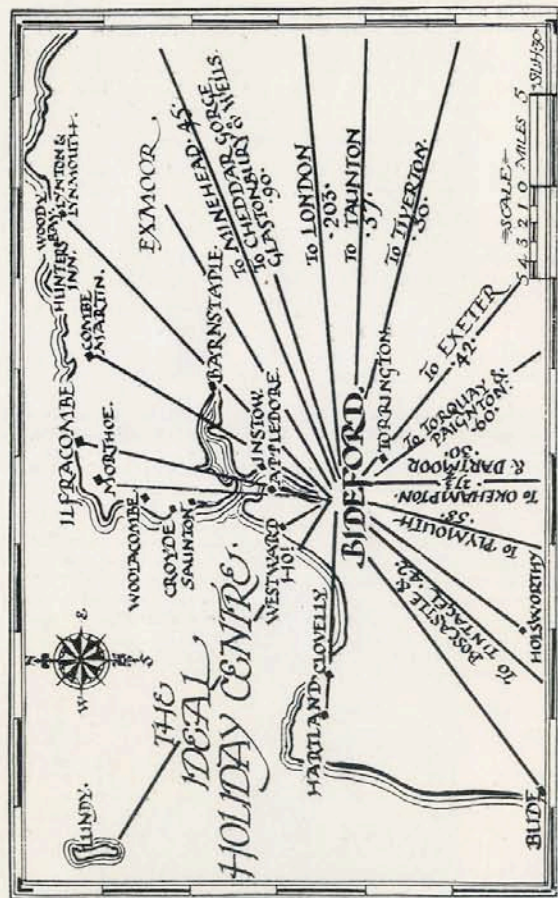 LUNDY.
THE
IDEAL
HOLIDAY CENTRE.
N
E
S
W
ILFRACOMBE
MORTHOE.
WOOLACOMBE
CROYDE
SAUNTON
COMBE
MARTIN.
HUNTERS
INN.
WOODY
BAY.
LYNTON &
LYNMOUTH.
EXMOOR.
BARNSTAPLE.
INSTOW.
APPLEDORE.
WESTWARD
HO!
HARTLAND
CLOVELLY.
BIDEFORD.
TORRINGTON.
TO MINEHEAD. 45.
TO CHEDDAR GORGE
GLASTONBURY & WELLS.
.90.
TO LONDON
.203.
TO TAUNTON
TO TIVERTON.
TO EXETER
42.
TO TORQUAY &
PAIGNTON.
.60.
TO OKEHAMPTON
& DARTMOOR
.30.
TO PLYMOUTH
.58.
HOLSWORTHY
BOSCASTLE &
TO TINTAGEL .42.
BUDE
SCALE
5 4 3 2 1 0 MILES 5